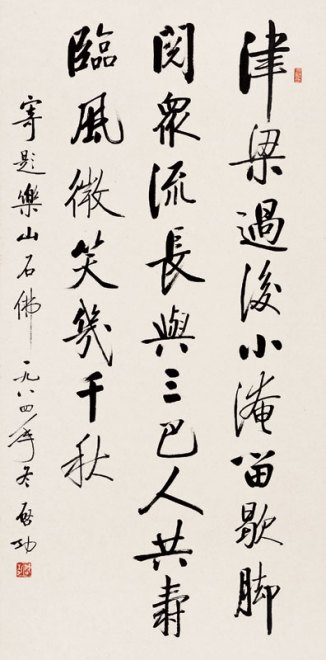 津梁過後小淹留歇脚
閱衆流長與三巴人共壽
臨風微笑幾千秋
寄題樂山石佛 一九八四年冬 啟功